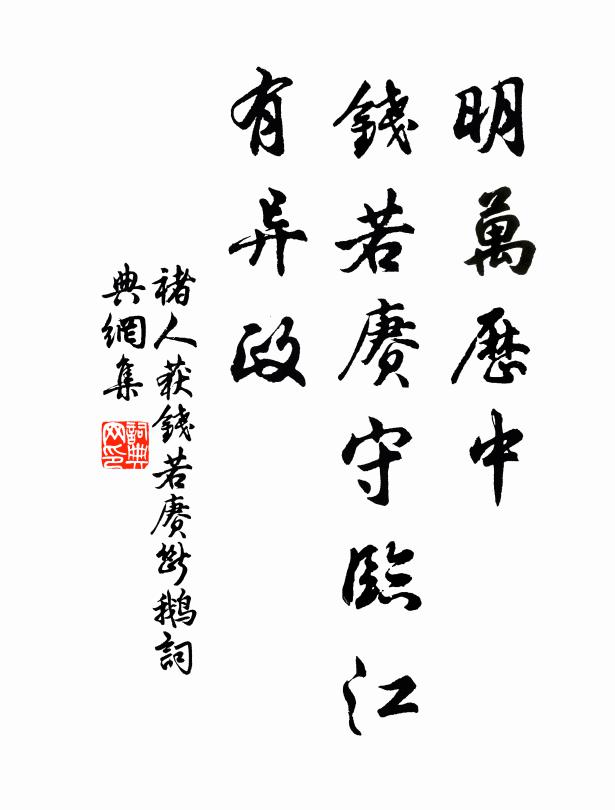 明萬歷中
錢若賡守臨江
有异政
褚人获錢若賡斷鵝詞
典網集
詞典
网印